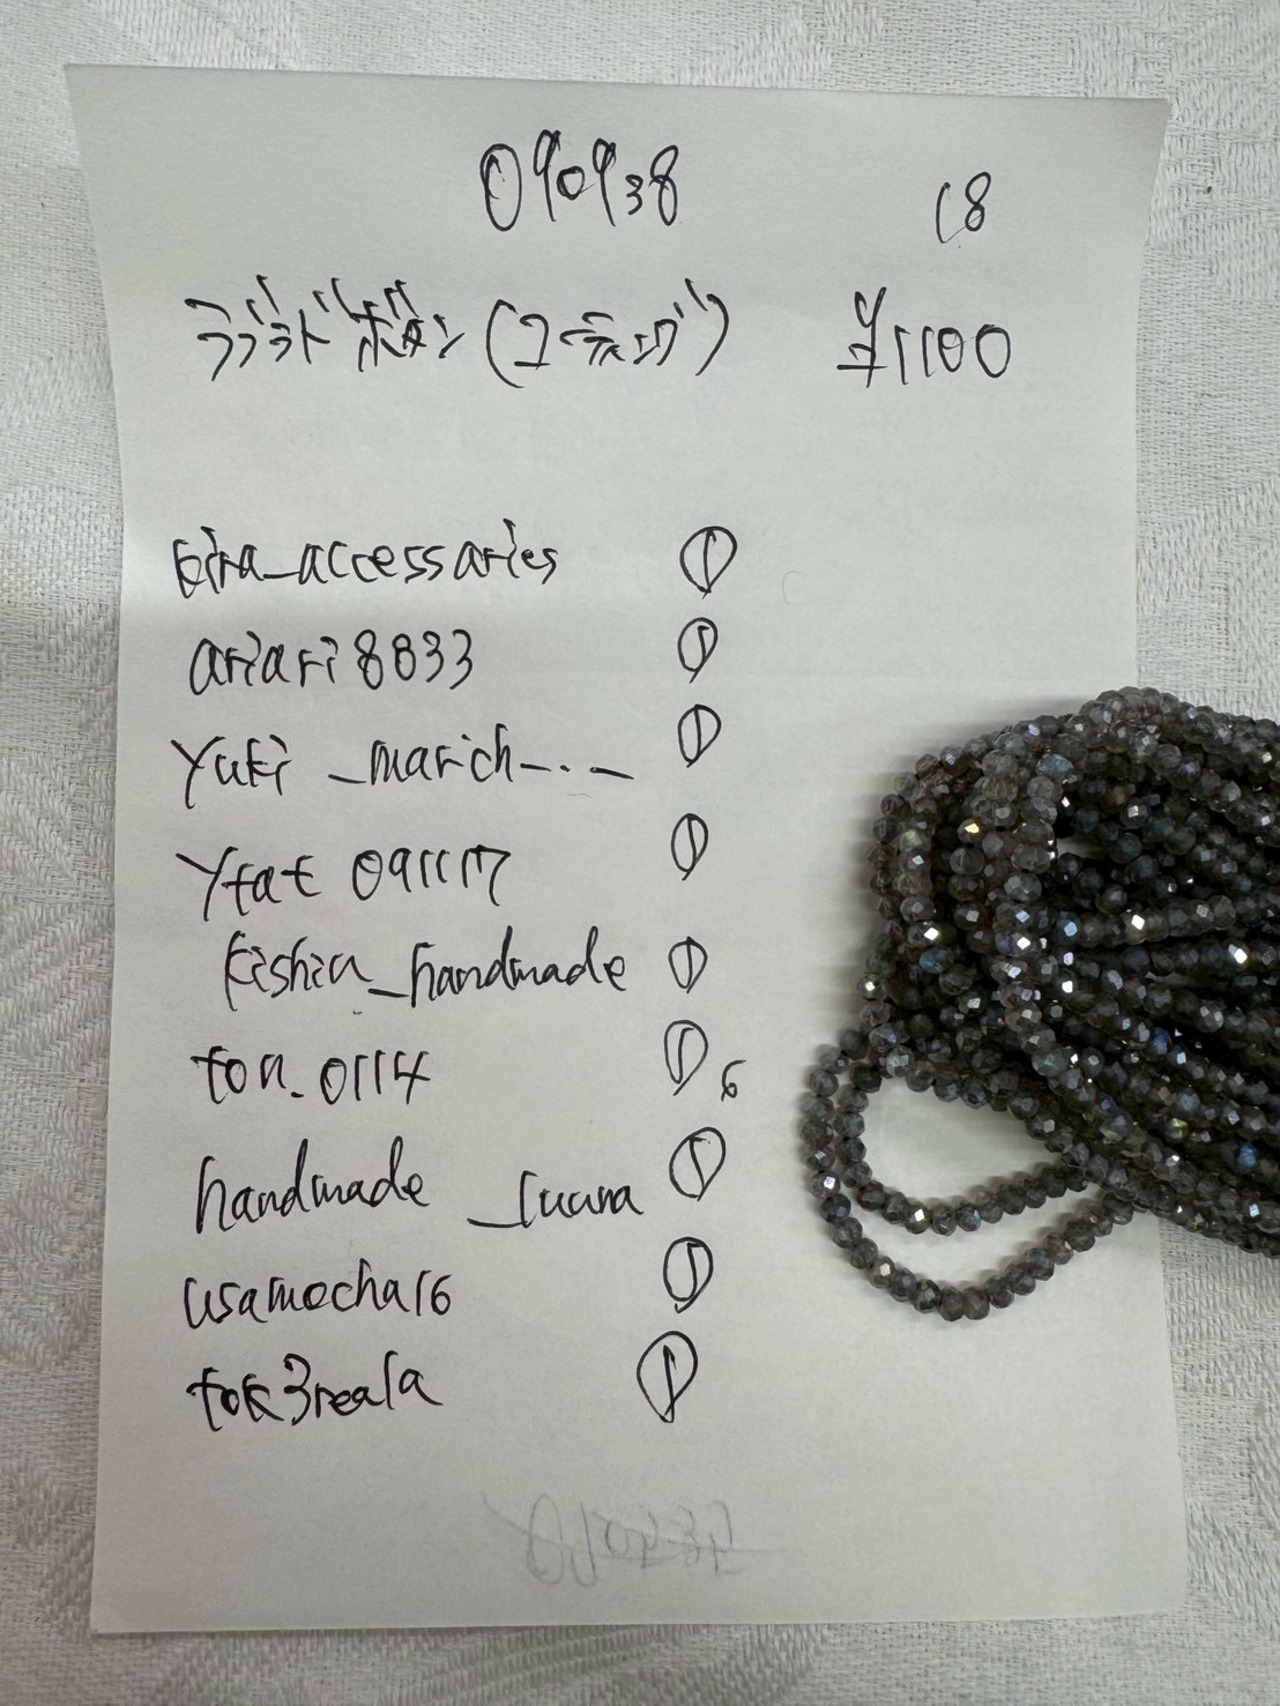 090938 18
ラブラド ボタン (コーティング) ¥1100
kira_accessaries ①
ariari8833 ①
yuki_marich-.._ ①
ytat091117 ①
kishin_handmade ①
ton.0114 ① 6
handmade_luana ①
usamocha16 ①
tok3reala ①